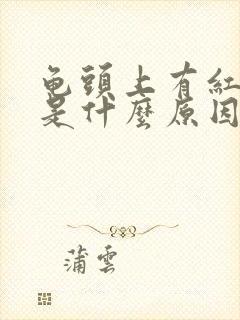 龟頭上有紅
是什麼原因
蒲雲